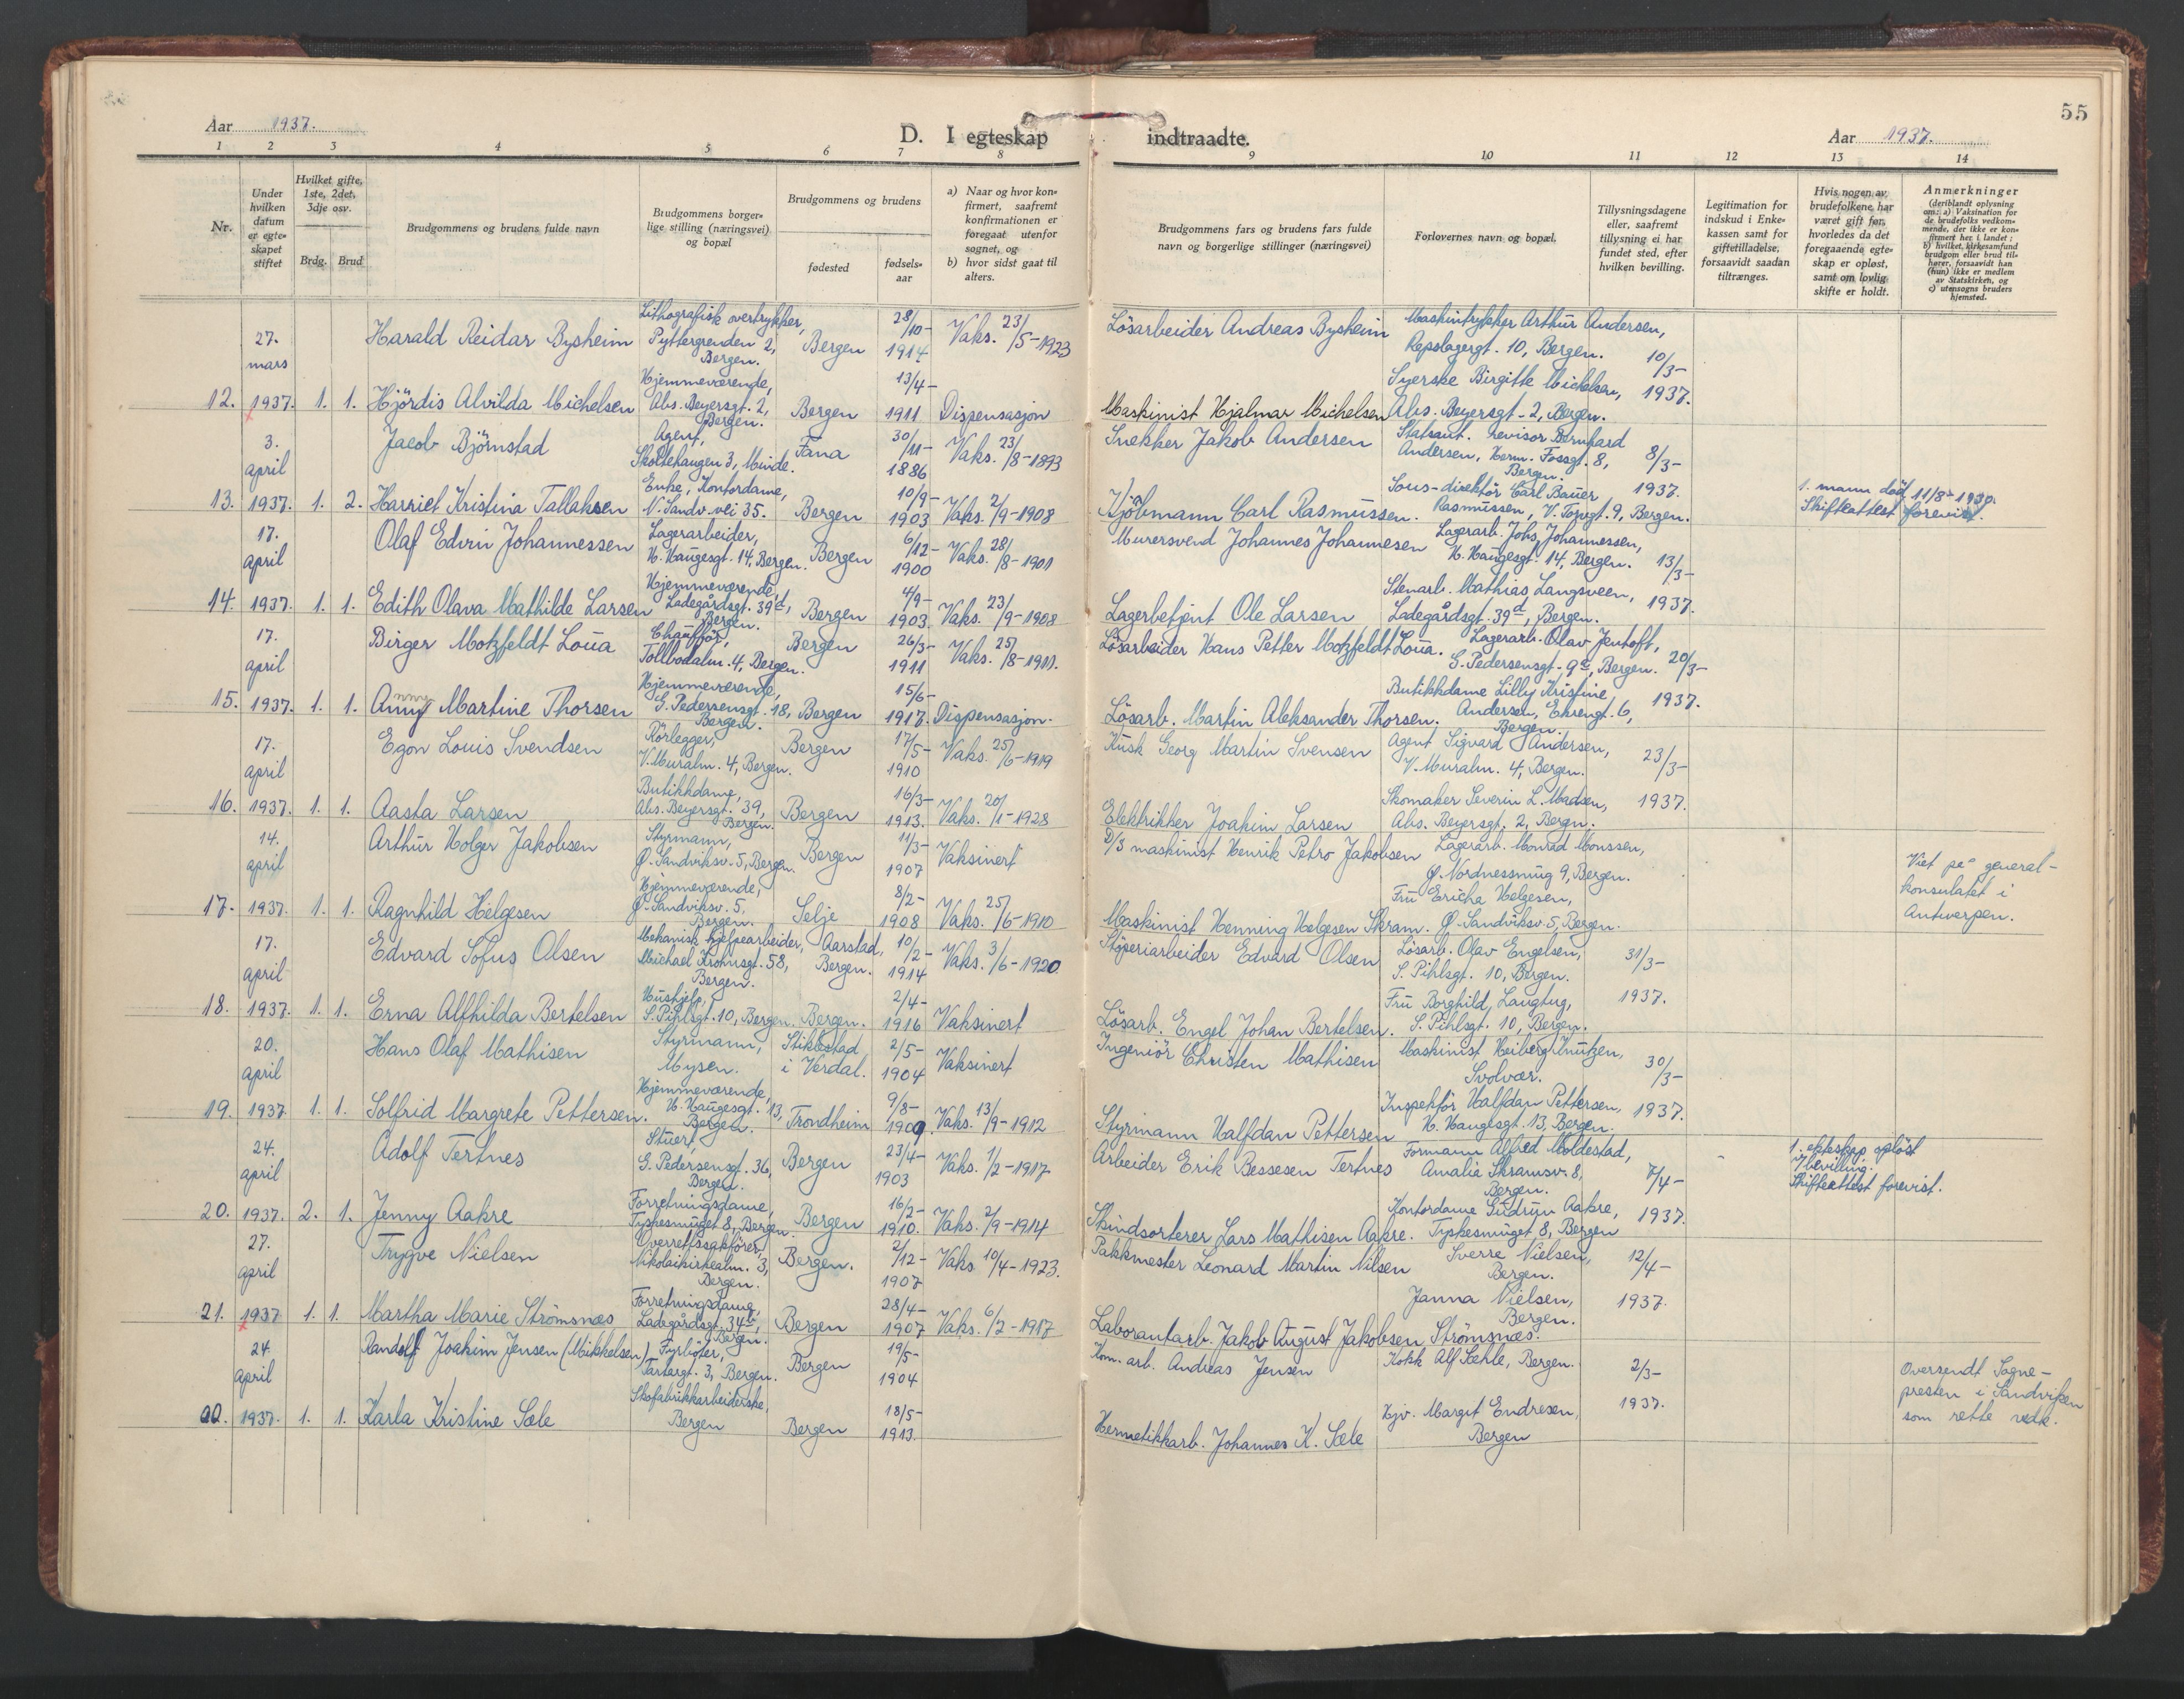 55
Aar 1937.
D. I egteskap indtraadte.
Aar 1937.
1 2 3 4 5 6 7 8 9 10 11 12 13 14
Nr.
Under hvilken datum er egteskapet stiftet
Hvilket gifte, 1ste, 2det, 3dje osv.
Brdg. Brud
Brudgommens og brudens fulde navn
Brudgommens borgerlige stilling (næringsvei) og bopæl
Brudgommens og brudens
fødested
fødselsaar
a) Naar og hvor konfirmert, saafremt konfirmationen er foregaat utenfor sognet, og
b) hvor sidst gaat til alters.
Brudgommens fars og brudens fars fulde navn og borgerlige stillinger (næringsvei)
Forlovernes navn og bopæl.
Tillysningsdagene eller, saafremt tillysning ei har fundet sted, efter hvilken bevilling.
Legitimation for indskud i Enkekassen samt for giftetilladelse, forsaavidt saadan tiltrænges.
Hvis nogen av brudefolkene har været gift før, hvorledes da det foregaaende egteskap er opløst, samt om lovlig skifte er holdt.
Anmerkninger
(deriblandt oplysning om: a) Vaksination for de brudefolks vedkommende, der ikke er konfirmert her i landet; b) hvilket kirkesamfund brudgom eller brud tilhører, forsaavidt han (hun) ikke er medlem av Statskirken, og c) utensogns bruders hjemsted.
12. 27. mars 1937. 1. 1.
Harald Reidar Bysheim
Lithografisk overtrykker, Pyttergrenden 2, Bergen.
Bergen 28/10-1914 Vaks. 23/5-1923
Lösarbeider Andreas Bysheim
Maskintrykker Arthur Andersen, Repslagergt. 10, Bergen.
10/3-1937.
Hjördis Alvilda Michelsen
Hjemmeværende, Abs. Beyersgt. 2, Bergen.
Bergen 13/4-1911 Dispensasjon
Maskinist Hjalmar Michelsen
Syerske Birgitte Michelsen, Abs. Beyersgt. 2, Bergen.
13. 3. april 1937. 1. 2.
Jacob Björnstad
Agent, Skoltehaugen 3, Minde.
Fana 30/11-1886 Vaks. 23/8-1893
Snekker Jakob Andersen
Statsaut. revisor Bernhard Andersen, Herm. Fossgt. 8, Bergen.
8/3-1937.
Harriet Kristina Tallaksen
Enke, Kontordame, N. Sandv.vei 35.
Bergen 10/9-1903 Vaks. 2/9-1908
Kjöbmann Carl Rasmussen.
Sous-direktör Carl Bauer Rasmussen, V. Torvgt. 9, Bergen.
1. mann död 11/8-1930. Skifteattest forevist.
14. 17. april 1937. 1. 1.
Olaf Edvin Johannessen
Lagerarbeider, H. Haugesgt. 14, Bergen.
Bergen 6/12-1900 Vaks. 28/8-1901
Murersvend Johannes Johannesen
Lagerarb. Johs. Johannessen, H. Haugesgt. 14, Bergen.
13/3-1937.
Edith Olava Mathilde Larsen
Hjemmeværende, Ladegårdsgt. 39d, Bergen.
Bergen 4/9-1903 Vaks. 23/9-1908
Lagerbetjent Ole Larsen
Stenarb. Mathias Langsveen, Ladegårdsgt. 39d, Bergen.
15. 17. april 1937. 1. 1.
Birger Motzfeldt Loua
Chaufför, Tollbodalm. 4, Bergen.
Bergen 26/3-1911 Vaks. 25/8-1911.
Lösarbeider Hans Petter Motzfeldt Loua.
Lagerarb. Olav Jentoft, G. Pedersensgt. 9c, Bergen.
20/3-1937.
Anny Martine Thorsen
Hjemmeværende, G. Pedersensgt. 18, Bergen.
Bergen 15/6-1917. Dispensasjon.
Lösarb. Martin Aleksander Thorsen.
Butikkdame Lilly Kristine Andersen, Ehrengt. 6, Bergen.
16. 17. april 1937. 1. 1.
Egon Louis Svendsen
Rörlegger, V. Muralm. 4, Bergen.
Bergen 17/5-1910 Vaks. 25/6-1919
Kusk Georg Martin Svensen
Agent Sigvard Andersen, V. Muralm. 4, Bergen.
23/3-1937.
Aasta Larsen
Butikkdame, Abs. Beyersgt. 39, Bergen.
Bergen 16/3-1913. Vaks. 20/1-1928
Elektrikker Joakim Larsen
Skomaker Severin L. Madsen, Abs. Beyersgt. 2, Bergn.
17. 14. april 1937. 1. 1.
Arthur Holger Jakobsen
Styrmann, Ø. Sandviksv. 5, Bergen.
Bergen 11/3-1907 Vaksinert
2/3 maskinist Henrik Petro Jakobsen
Lagerarb. Monrad Monssen, Ø. Nordnessmug 9, Bergen.
Ragnhild Helgesen
Hjemmeværende, Ø. Sandviksv. 5, Bergen.
Selje 8/2-1908 Vaks. 25/6-1910
Maskinist Henning Helgesen Skram.
Fru Ericha Helgesen, Ø. Sandviksv. 5, Bergen.
Viet på generalkonsulatet i Antwerpen.
18. 17. april 1937. 1. 1.
Edvard Sofus Olsen
Mekanisk hjelpearbeider, Michael Krohnsgt. 58, Bergen.
Aarstad, Bergen. 10/2-1914 Vaks. 3/6-1920
Stöperiarbeider Edvard Olsen
Lösarb. Olav Engelsen, S. Pihlsgt. 10, Bergen.
31/3-1937.
Erna Alfhilda Bertelsen
Hushjelp, S. Pihlsgt. 10, Bergen.
Bergen. 2/4-1916 Vaksinert
Lösarb. Engel Johan Bertelsen.
Fru Borghild Langtug, S. Pihlsgt. 10, Bergen.
19. 20. april 1937 1. 1.
Hans Olaf Mathisen
Styrmann, Mysen.
Stiklestad i Verdal. 2/5-1904 Vaksinert
Ingeniör Christen Mathisen
Maskinist Heiberg Knutzen, Svolvær.
30/3-1937.
Solfrid Margrete Pettersen.
Hjemmeværende, H. Haugesgt. 13, Bergen.
Trondheim 9/8-1909. Vaks. 13/9-1912
Styrmann Halfdan Pettersen
Inspektör Halfdan Pettersen, H. Haugesgt. 13, Bergen.
20. 24. april 1937. 2. 1.
Adolf Tertnes
Stuert, G. Pedersensgt. 36, Bergen.
Bergen 23/4-1903 Vaks. 1/2-1917
Arbeider Erik Bessesen Tertnes
Formann Alfred Moldestad, Amalia Skramsv. 8, Bergen.
7/4-1937.
1. ekteskap oplöst v/ bevilling. Skifteattest forevist.
Jenny Aakre
Forretningsdame, Tyskesmuget 8, Bergen.
Bergen 16/2-1910. Vaks. 2/9-1914
Skindsorterer Lars Mathisen Aakre.
Kontordame Gudrun Aakre, Tyskesmuget 8, Bergen
21. 27. april 1937 1. 1.
Trygve Nielsen
Overrettssakförer, Nikolaikirkealm. 3, Bergen.
Bergen. 2/12-1907 Vaks. 10/4-1923.
Pakkmester Leonard Martin Nilsen
Sverre Nielsen, Bergen.
12/4-1937.
Martha Marie Strömsnæs
Forretningsdame, Ladegårdsgt. 34, Bergen.
Bergen 28/4-1907 Vaks. 6/2-1917
Laborantarb. Jakob August Jakobsen Strömsnæs.
Janna Nielsen, Bergen.
00. 24. april 1937. 1. 1.
Randolf Joakim Jensen (Mikkelsen)
Fyrböter, Tartargt. 3, Bergen.
Bergen 19/5-1904
Kom. arb. Andreas Jensen
Kokk Alf Sæhle, Bergen.
2/3-1937.
Karla Kristine Sæle
Skofabrikkarbeiderske, Bergen
Bergen 18/5-1913.
Hermetikkarb. Johannes K. Sæle
Hjv. Margit Endresen, Bergen
Oversendt Sognepresten i Sandviken som rette vedk.